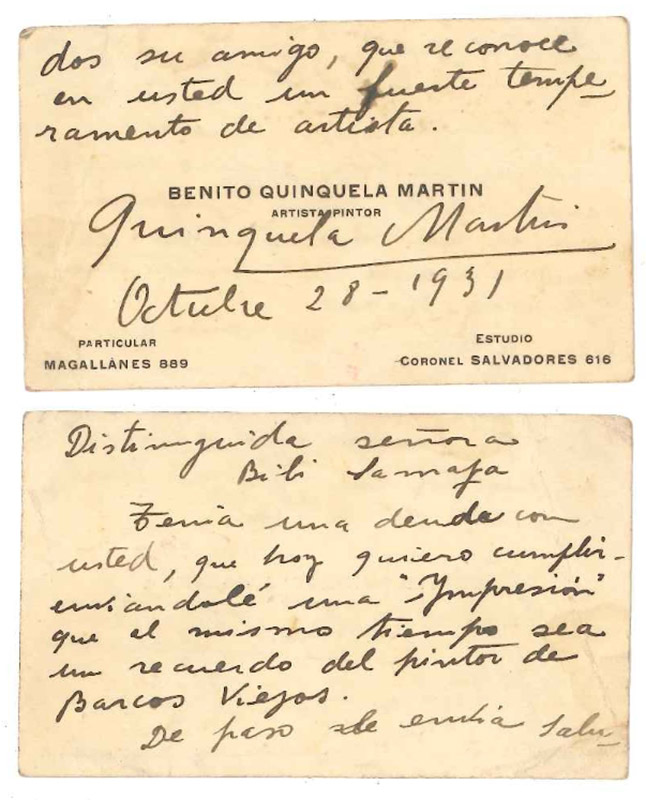 dos su amigo, que reconoce
en usted un fuerte tempe-
ramento de artista.
BENITO QUINQUELA MARTIN
ARTISTA PINTOR
Quinquela Martin
Octubre 28-1931
PARTICULAR
MAGALLANES 889
ESTUDIO
CORONEL SALVADORES 616
Distinguida señora
Bibi
Tenia una deuda con
usted, que hoy quiero cumplir-
enviandolé una "Ympresión"
que al mismo tiempo sea
un recuerdo del pintor de
Barcos Viejos.
De paso le envia Salu-